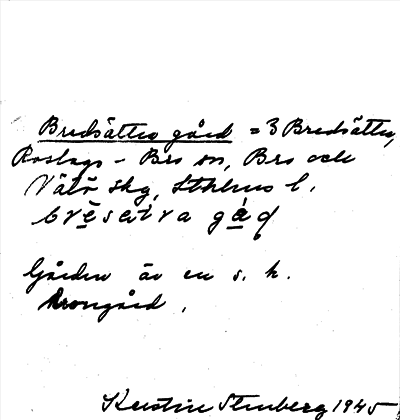 Bredsättra gård = 3 Bredsättra,
Roslags-Bro sn, Bro och
Vätö skg, Sthlms l.
Gården är en s. k.
kronogård.
Kerstin Stenberg 1945